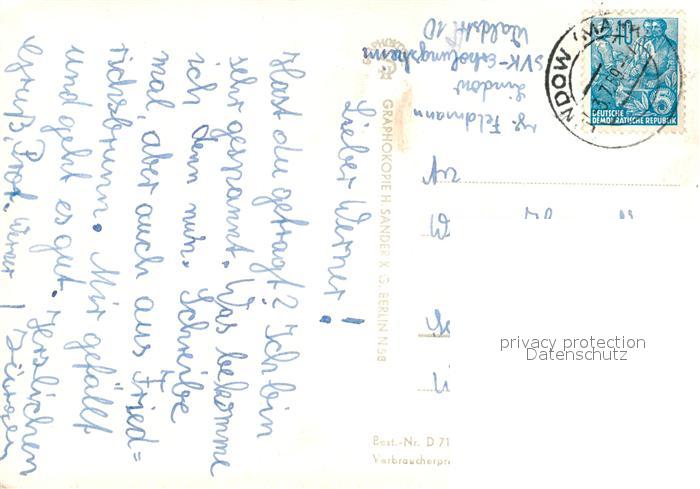 Lieber Werner!
Hast du gefragt? Ich bin
sehr gespannt. Was bekomme
ich denn nun. Schreibe
mal, aber auch aus Fried=
richsbrunn. Mir gefällt
und geht es gut. Herzlichen
Gruß, Prof. Werner / Jürgen
Feldmann
Lindow
SVK-Erholungsheim
Waldstr. 10
GRAPHOKOPIE H. SANDER K.G. BERLIN N 58
LINDOW (MARK)
DEUTSCHE
DEMOKRATISCHE REPUBLIK
5
privacy protection
Datenschutz
Best.-Nr. D 71
Verbraucherpr